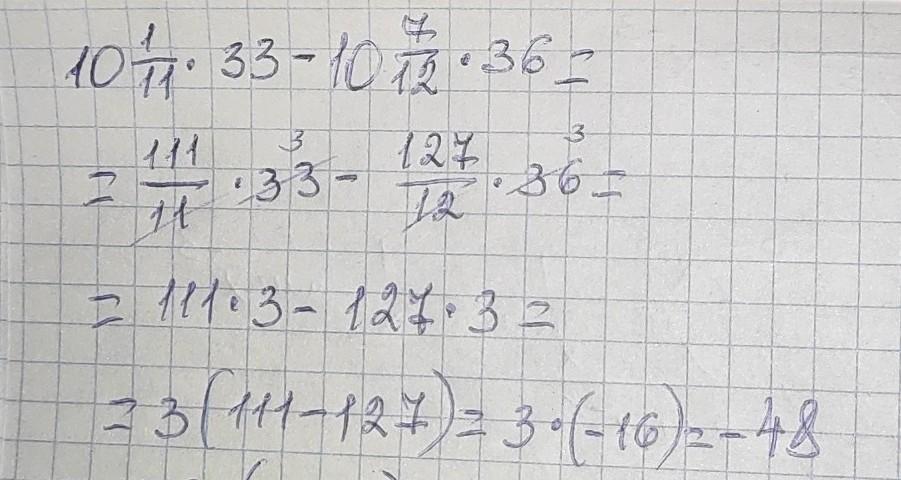 10 1/11 · 33 - 10 7/12 · 36 =
= 111/11 · 33 3 - 127/12 · 36 3 =
= 111 · 3 - 127 · 3 =
= 3 (111 - 127) = 3 · (-16) = -48